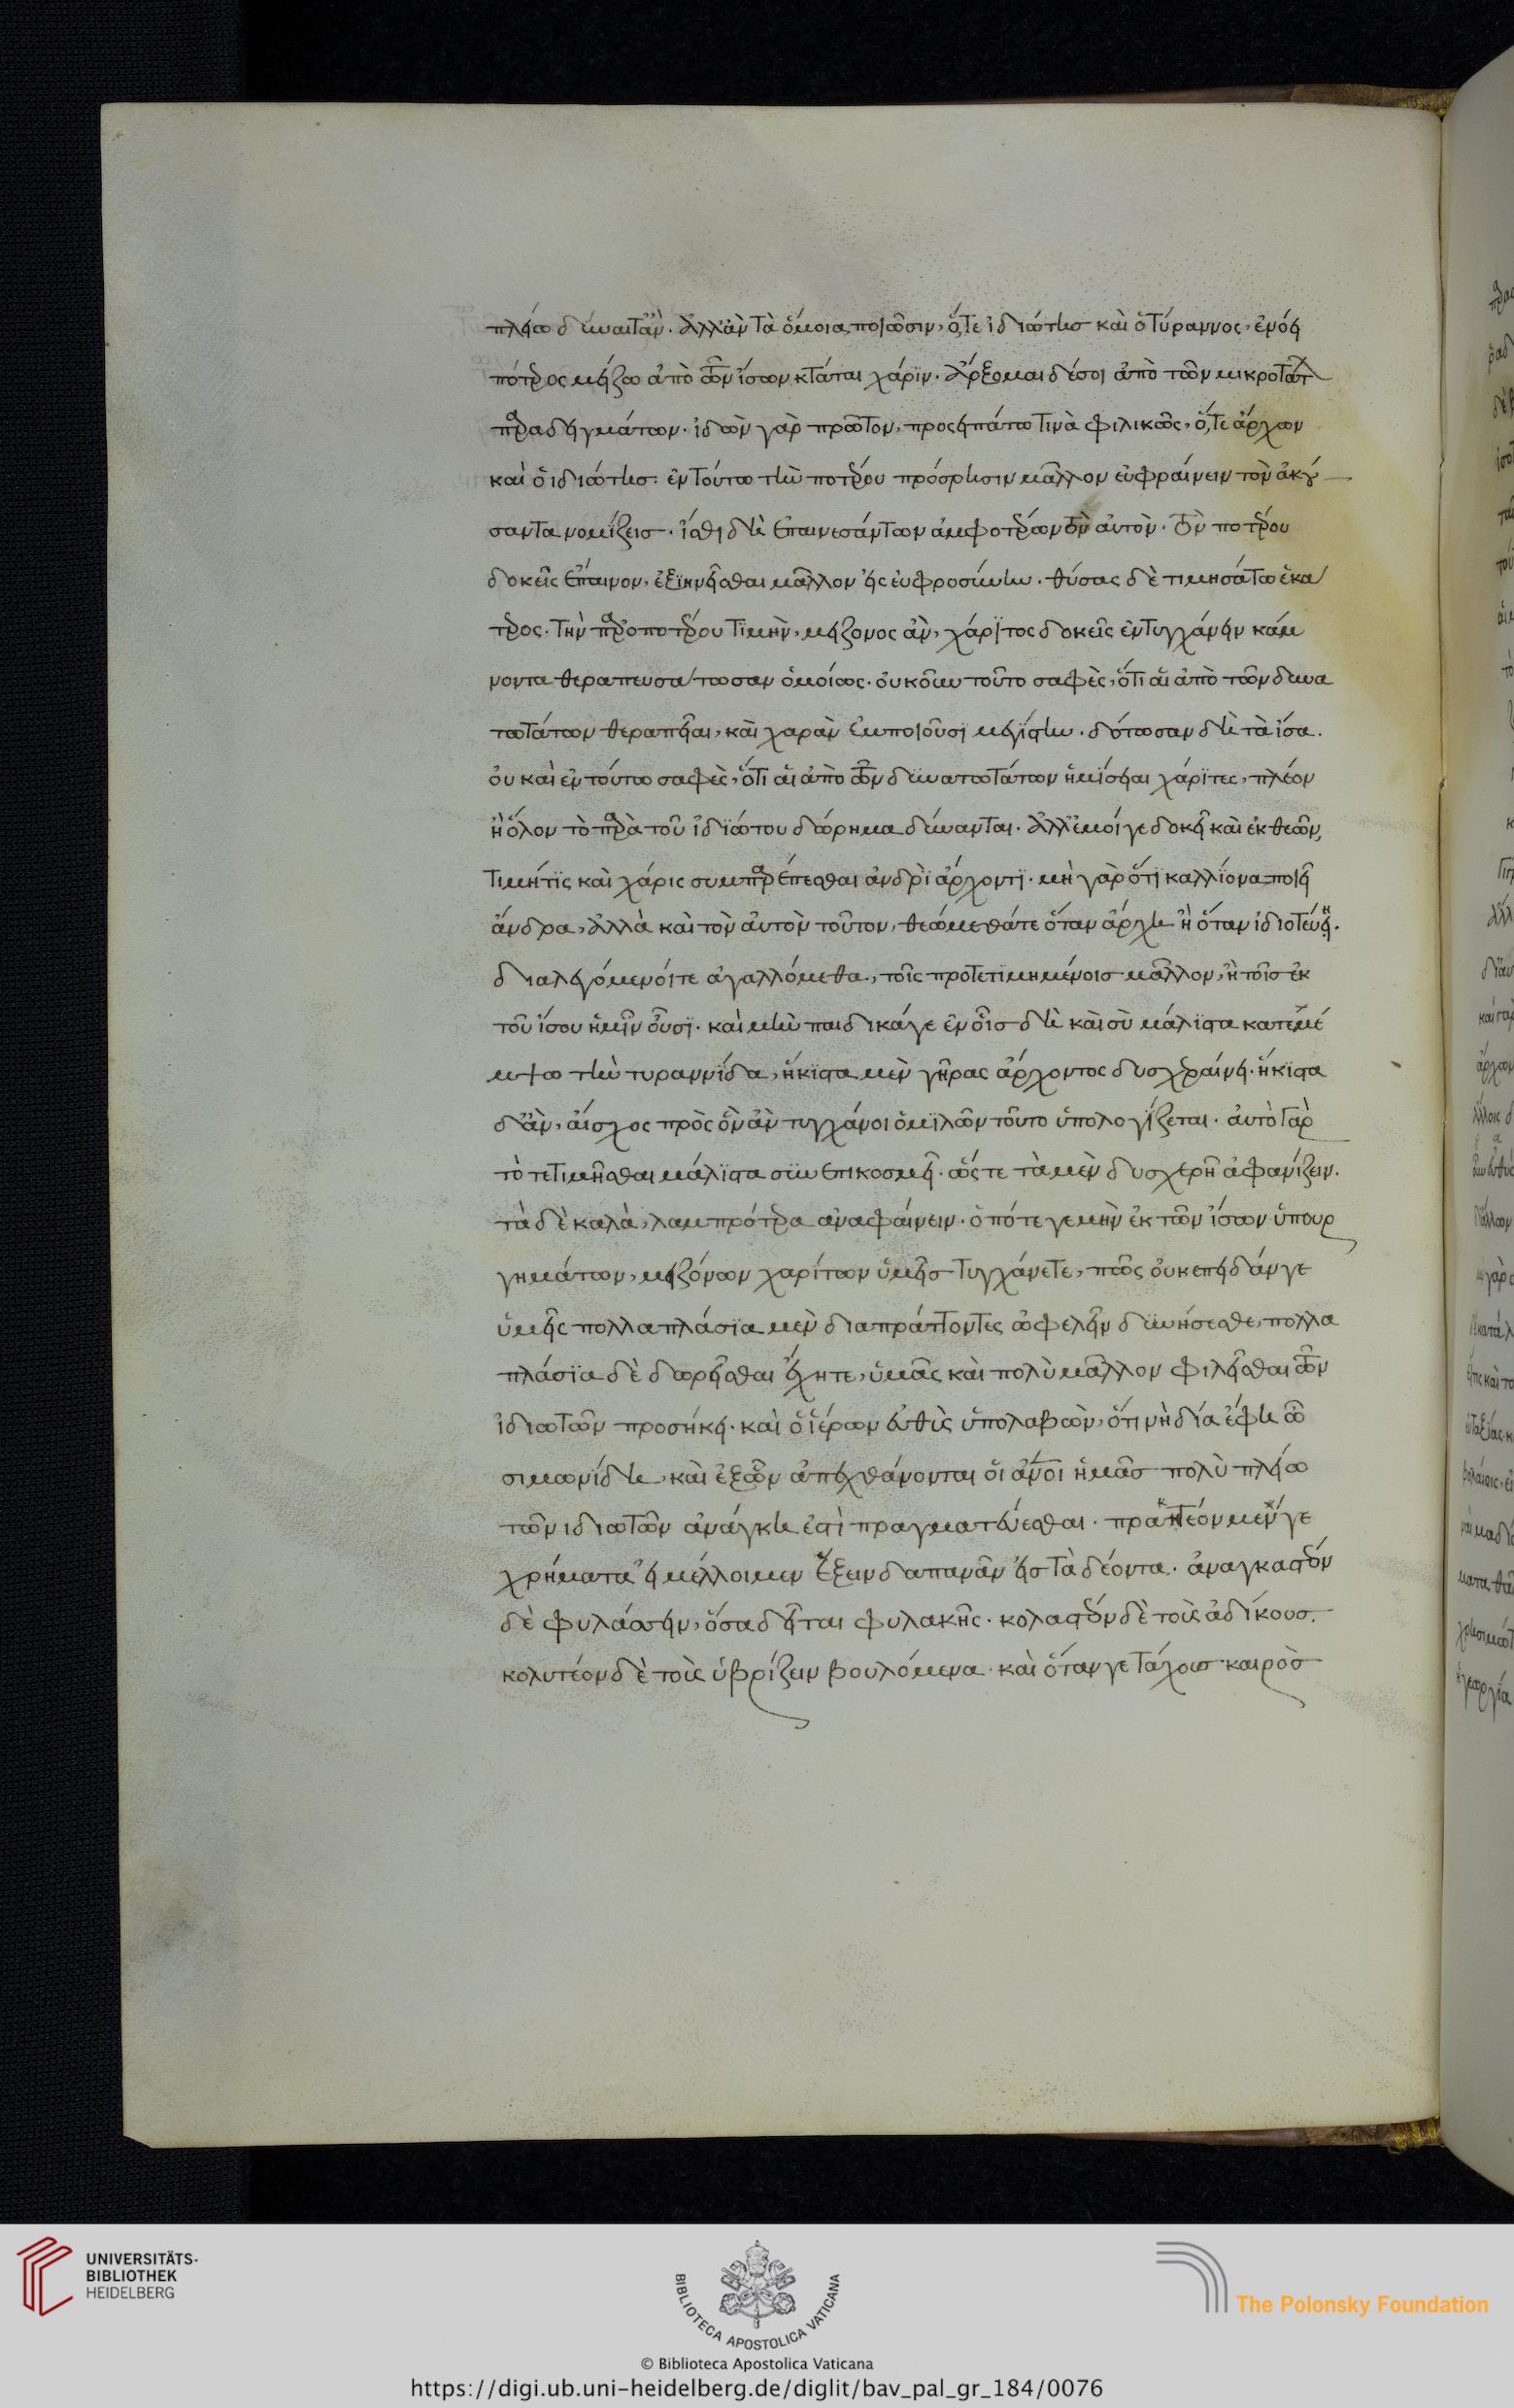 πλείω δύναιτ' ἂν. ἀλλ' ἂν τὰ ὅμοια ποιῶσιν, ὅ,τε ἰδιώτησ καὶ ὁ τύραννος, ἐνόει
πότερος μείζω ἀπὸ τῶν ἴσων κτᾶται χάρϊν. ἄρξομαι δέ σοι ἀπὸ τῶν μικροτάτων
παραδειγμάτων. ἰδὼν γὰρ πρῶτον, προσειπάτω τινὰ φιλικῶς, ὅ,τε ἄρχων
καὶ ὁ ἰδιώτησ· ἐν τούτω τὴν ποτέρου πρόσρησιν μᾶλλον εὐφραίνειν τὸν ἀκού
σαντα νομίζεισ. ἴθι δὴ ἐπαινεσάντων ἀμφοτέρων τὸν αὐτὸν. τὸν ποτέρου
δοκεῖς ἔπαινον, ἐξϊκνεῖσθαι μᾶλλον εἰς εὐφροσύνην. θύσας δὲ τιμησάτω ἑκά
τερος. τὴν παρ' ὁποτέρου τιμὴν, μείζονος ἂν, χάρϊτος δοκεῖς ἐντυγχάνειν κάμ
νοντα θεραπευσάτωσαν ὁμοίως. οὐκοῦν τοῦτο σαφὲς, ὅτι αἱ ἀπὸ τῶν δυνα
τωτάτων θεραπεῖαι, καὶ χαρὰν ἐμποιοῦσϊ μεγίστην. δότωσαν δὴ τὰ ἴσα.
οὐ καὶ ἐν τούτω σαφὲς, ὅτι αἱ ἀπὸ τῶν δυνατωτάτων ἡμίσειαι χάρϊτες, πλέον
ἢ ὅλον τὸ παρὰ τοῦ ἰδϊώτου δώρημα δύνανται. ἀλλ' ἐμοί γε δοκεῖ καὶ ἐκ θεῶν,
τιμή τϊς καὶ χάρις συμπαρέπεσθαι ἀνδρὶ ἄρχοντϊ. μὴ γὰρ ὅτϊ καλλίονα ποιεῖ
ἄνδρα, ἀλλὰ καὶ τὸν αὐτὸν τοῦτον, θεώμεθά τε ὅταν ἄρχη ἢ ὅταν ἰδιοτεύει.
διαλεγόμενοί τε ἀγαλλόμεθα, τοῖς προτετιμημένοισ μᾶλλον, ἢ τοῖσ ἐκ
τοῦ ἴσου ἡμῖν οὖσϊ. καὶ μὴν παιδικά γε ἐν οἷσ δὴ καὶ σὺ μάλϊστα κατεμέ
μψω τὴν τυραννίδα, ἥκϊστα μὲν γῆρας ἄρχοντος δυσχεραίνει. ἥκϊστα
δ' ἂν, αἶσχος πρὸς ὃν ἂν τυγχάνοι ὁμϊλῶν τοῦτο ὑπολογΐζεται. αὐτὸ γὰρ
τὸ τετιμῆσθαι μάλϊστα συνεπικοσμεῖ. ὥςτε τὰ μὲν δυσχερῆ ἀφανίζειν.
τὰ δὲ καλὰ, λαμπρότερα ἀναφαίνειν. ὁπότε γε μὴν ἐκ τῶν ἴσων ὑπουρ
γημάτων, μειζόνων χαρίτων ὑμεῖσ τυγχάνετε, πῶς οὐκ ἐπειδάν γε
ὑμεῖς πολλαπλάσϊα μὲν διαπράττοντες ὠφελεῖν δϋνήσεσθε, πολλα
πλάσϊα δὲ δωρεῖσθαι ἔχητε, ὑμᾶς καὶ πολὺ μᾶλλον φιλεῖσθαι τῶν
ἰδιωτῶν προσήκει. καὶ ὁ ἱέρων εὐθὺς ὑπολαβὼν, ὅτι νὴ δία ἔφη ὦ
σιμωνίδη, καὶ ἐξ ὧν ἀπεχθάνονται οἱ ἄνοι ἡμᾶσ πολὺ πλείω
τῶν ἰδιωτῶν ἀνάγκη ἐστὶ πραγματεύεσθαι. πρακτέον μέν γε
χρήματα εἰ μέλλοιμεν ἕξειν δαπανᾶν εἰσ τὰ δέοντα. ἀναγκαστέον
δὲ φυλάσσειν, ὅσα δεῖται φυλακῆς. κολαστέον δὲ τοὺς ἀδίκουσ.
κολυτέον δὲ τοὺς ὑβρίζειν βουλόμενα. καὶ ὅταν γε τάχουσ καιρὸσ
UNIVERSITÄTS-
BIBLIOTHEK
HEIDELBERG
BIBLIOTECA APOSTOLICA VATICANA
The Polonsky Foundation
© Biblioteca Apostolica Vaticana
https://digi.ub.uni-heidelberg.de/diglit/bav_pal_gr_184/0076